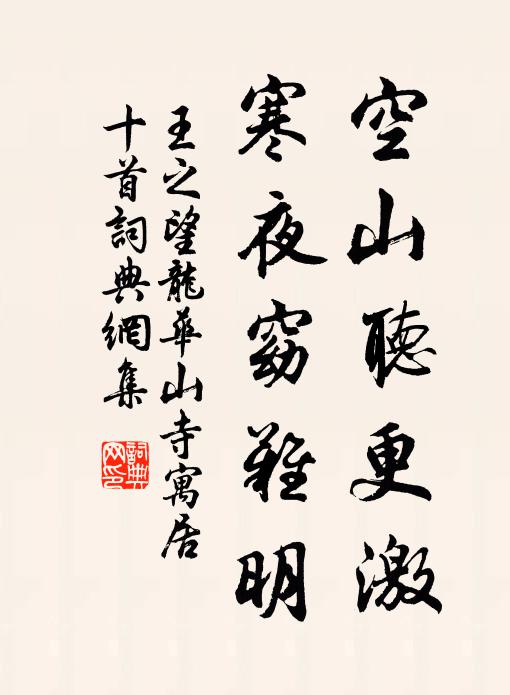 空山聽更激
寒夜窈難明
王之望龍華山寺寓居
十首詞典網集
詞典
网印